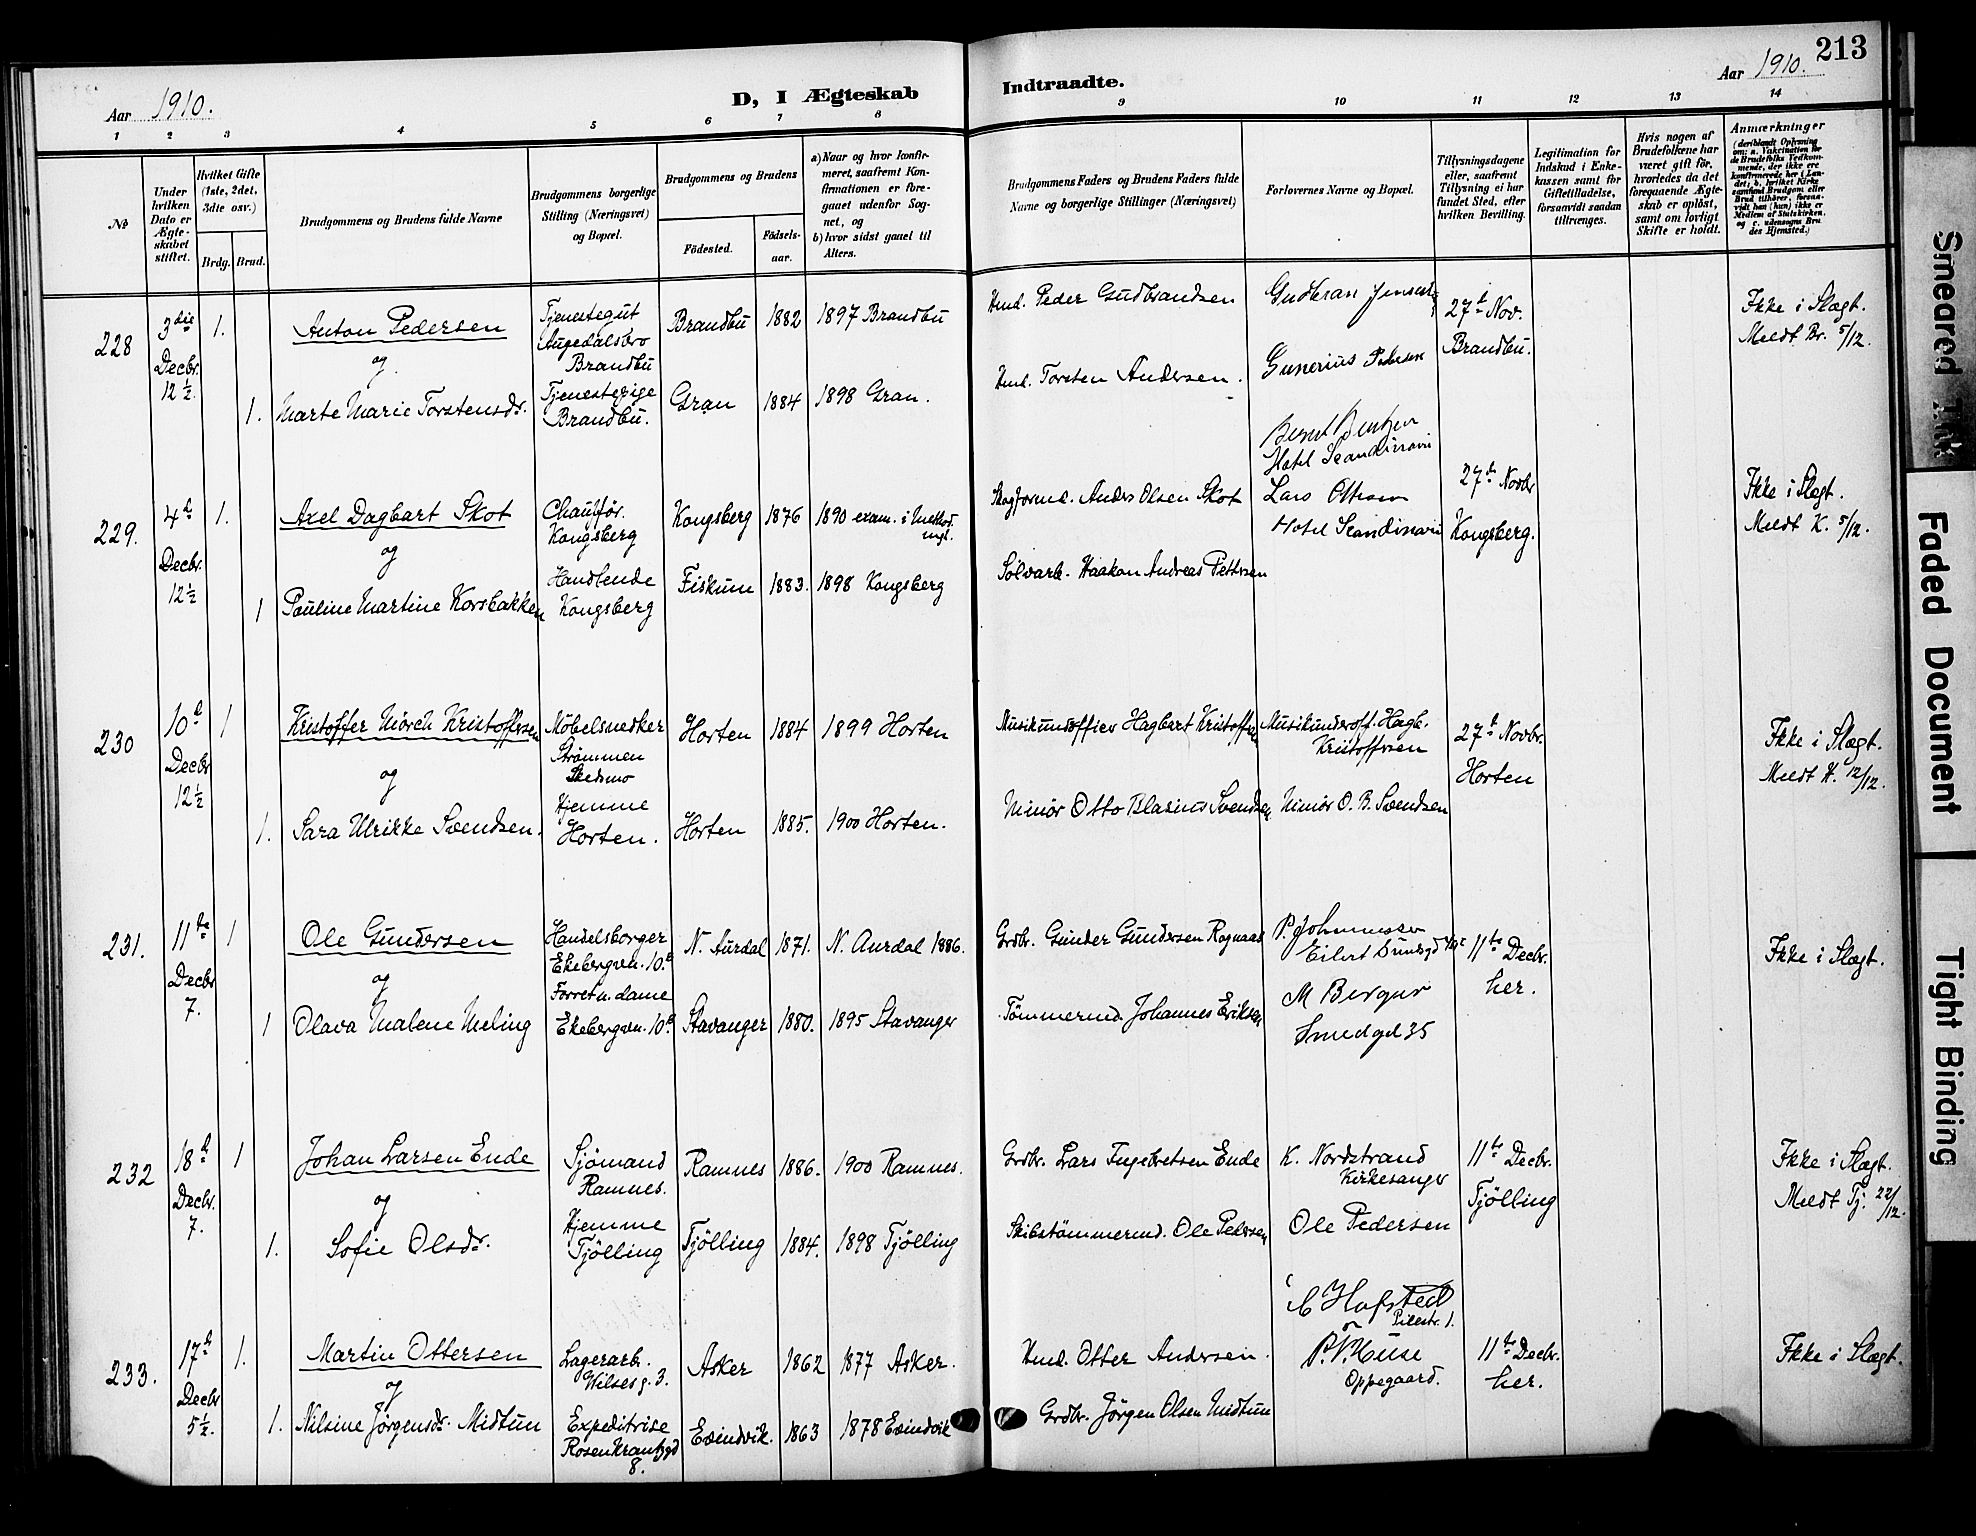 Aar 1910.
D, I Ægteskab
Indtraadte.
Aar 1910.
213
1 2 3 4 5 6 7 8 9 10 11 12 13 14
№
Under hvilken Dato er Ægteskabet stiftet.
Hvilket Gifte (1ste, 2det, 3die osv.)
Brdg. Brud.
Brudgommens og Brudens fulde Navne
Brudgommens borgerlige Stilling (Næringsvei) og Bopæl.
Brudgommens og Brudens
Födested.
Födselsaar.
a) Naar og hvor konfirmeret, saafremt Konfirmationen er foregaaet udenfor Sognet, og
b) hvor sidst gaaet til Alters.
Brudgommens Faders og Brudens Faders fulde Navne og borgerlige Stillinger (Næringsvei)
Forlovernes Navne og Bopæl.
Tillysningsdagene eller, saafremt Tillysning ei har fundet Sted, efter hvilken Bevilling.
Legitimation for Indskud i Enkekassen samt for Giftetilladelse, forsaavidt saadan tiltrænges.
Hvis nogen af Brudefolkene har været gift før, hvorledes da det foregaaende Ægteskab er oplöst, samt om lovligt Skifte er holdt.
Anmærkninger
(deriblandt Oplysning om: a. Vakcination for de Brudefolks Vedkommende, der ikke ere konfirmerede her i Landet; b. hvilket Kirkesamfund Brudgom eller Brud tilhører, forsaavidt han (hun) ikke er Medlem af Statskirken, og c. udensogns Brudes Hjemsted.)
228 3die Decbr. 12½ 1. Anton Pedersen
Tjenestegut Augedalsbro Brandbu
Brandbu 1882 1897 Brandbu
Hmd. Peder Gudbrandsen
27de Nov. Brandbu.
Ikke i Slægt.
Meldt Br. 5/12.
og
1. Marte Marie Torstensdr.
Tjenestepige Brandbu.
Gran 1884 1898 Gran.
Hmd. Torsten Andersen.
Gunerius Pedersen
229. 4de Decbr. 12½ 1. Axel Dagbart Skot
Chauffør. Kongsberg
Kongsberg 1876 1890 exam. i Methodmgt.
Skogformd. Anders Olsen Skot
Hotel Scandinavie
Lars Ottesen
Hotel Scandinavie
27de Novbr Kongsberg.
Ikke i Slægt.
Meldt K. 5/12.
og
1 Pauline Martine Korsbakken
Handlende Kongsberg
Fiskum 1883. 1898 Kongsberg
Sølvarb. Haakon Andreas Pettersen
230 10de Decbr 12½ 1 Kristoffer Mörch Kristoffersen
Møbelsnedker Strømmen Skedsmo
Horten 1884 1899 Horten
Musikundofficer Hagbart Kristoffersen
Musikunderoff. Hagb. Kristoffersen
27de Novbr. Horten
Ikke i Slægt.
Meldt H. 12/12.
og
1. Sara Ulrikke Svendsen.
Hjemme Horten.
Horten 1885. 1900 Horten.
Minör Otto Blasius Svendsen
Minör O. B. Svendsen
231. 11te Decbr 7. 1 Ole Gundersen
Handelsborger Ekebergvn. 10B
N. Aurdal 1871. N. Aurdal 1886.
Grdbr. Gunder Gundersen Rognaas
P. Johannessen
11te Decbr. her.
Ikke i Slægt.
og
1 Olava Malene Meling
Forretn. dame Ekebergvn. 10B
Stavanger 1880. 1895 Stavanger
Tömmermd. Johannes Eriksen
M Berger
Smedgd 35
232 18de Decbr. 7. 1 Johan Larsen Ende
Sjömand Ramnes.
Ramnes 1886. 1900 Ramnes.
Grdbr. Lars Ingebretsen Ende
K. Nordstrand Kirkesanger
11te Decbr. Tjölling
Ikke i Slægt.
Meldt Tj. 22/12.
og
1. Sofie Olsdr.
Hjemme Tjölling
Tjölling 1884. 1898 Tjölling
Skibstömmermd. Ole Pedersen
Ole Pedersen
233. 17de Decbr 5½. 1. Martin Ottersen
Lagerarb. Wilsesg. 3.
Asker 1862 1877 Asker.
Hmd. Otter Andersen.
C Hofsted
Pilestr. 1.
P. V. Huse
Oppegaard.
11te Decbr. her.
Ikke i Slægt.
og
1. Nilsine Jørgensdr. Midtun
Expeditrise Rosenkrantzgd 8.
Evindvik. 1863 1878 Evindvik
Grdbr. Jörgen Olsen Midtun
Smeared Ink
Faded Document
Tight Binding